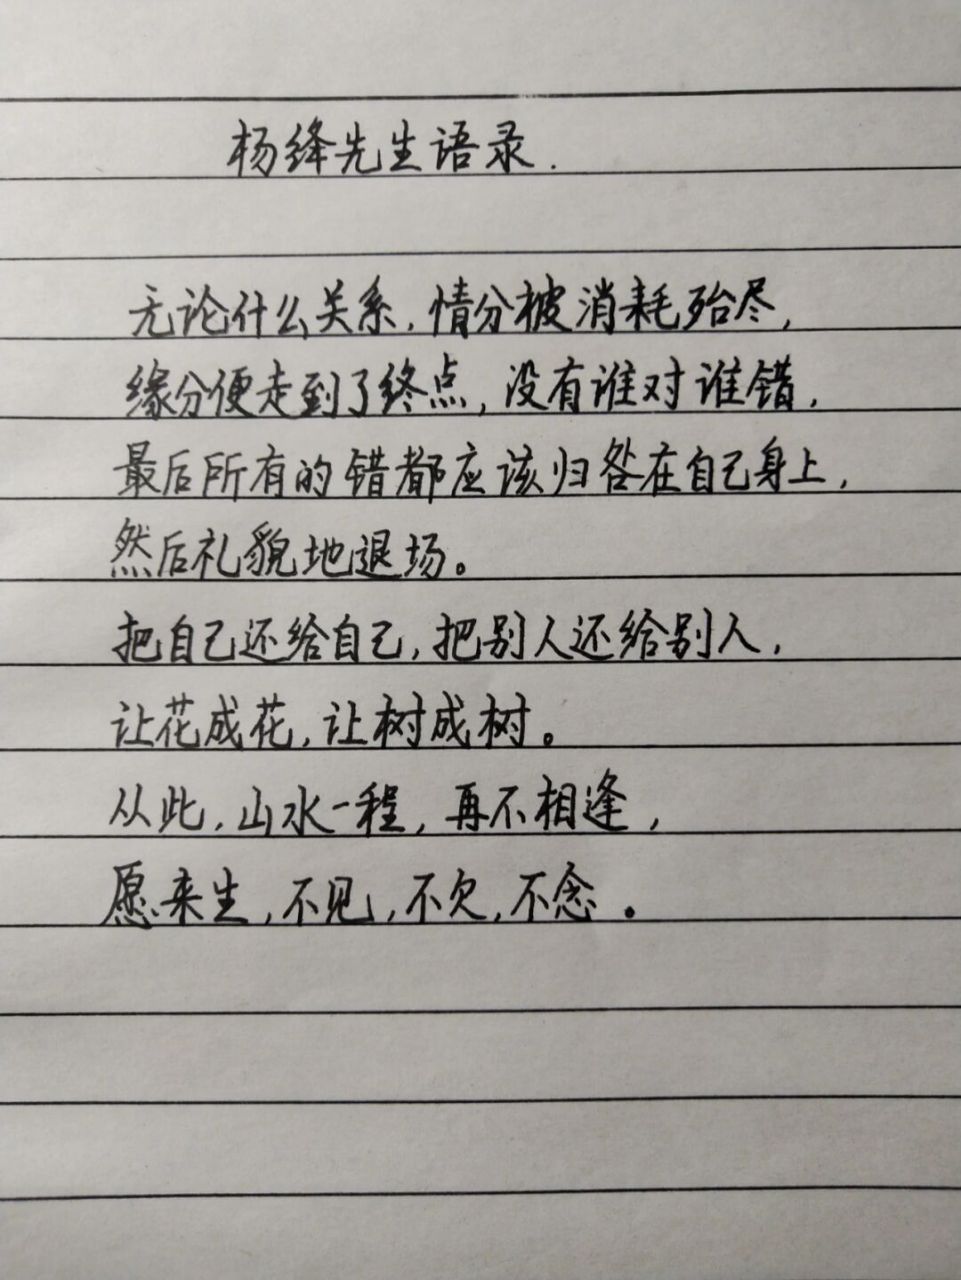 杨绛先生语录.
无论什么关系,情分被消耗殆尽,
缘分便走到了终点,没有谁对谁错,
最后所有的错都应该归咎在自己身上,
然后礼貌地退场。
把自己还给自己,把别人还给别人,
让花成花,让树成树。
从此,山水一程,再不相逢,
愿来生,不见,不欠,不念。